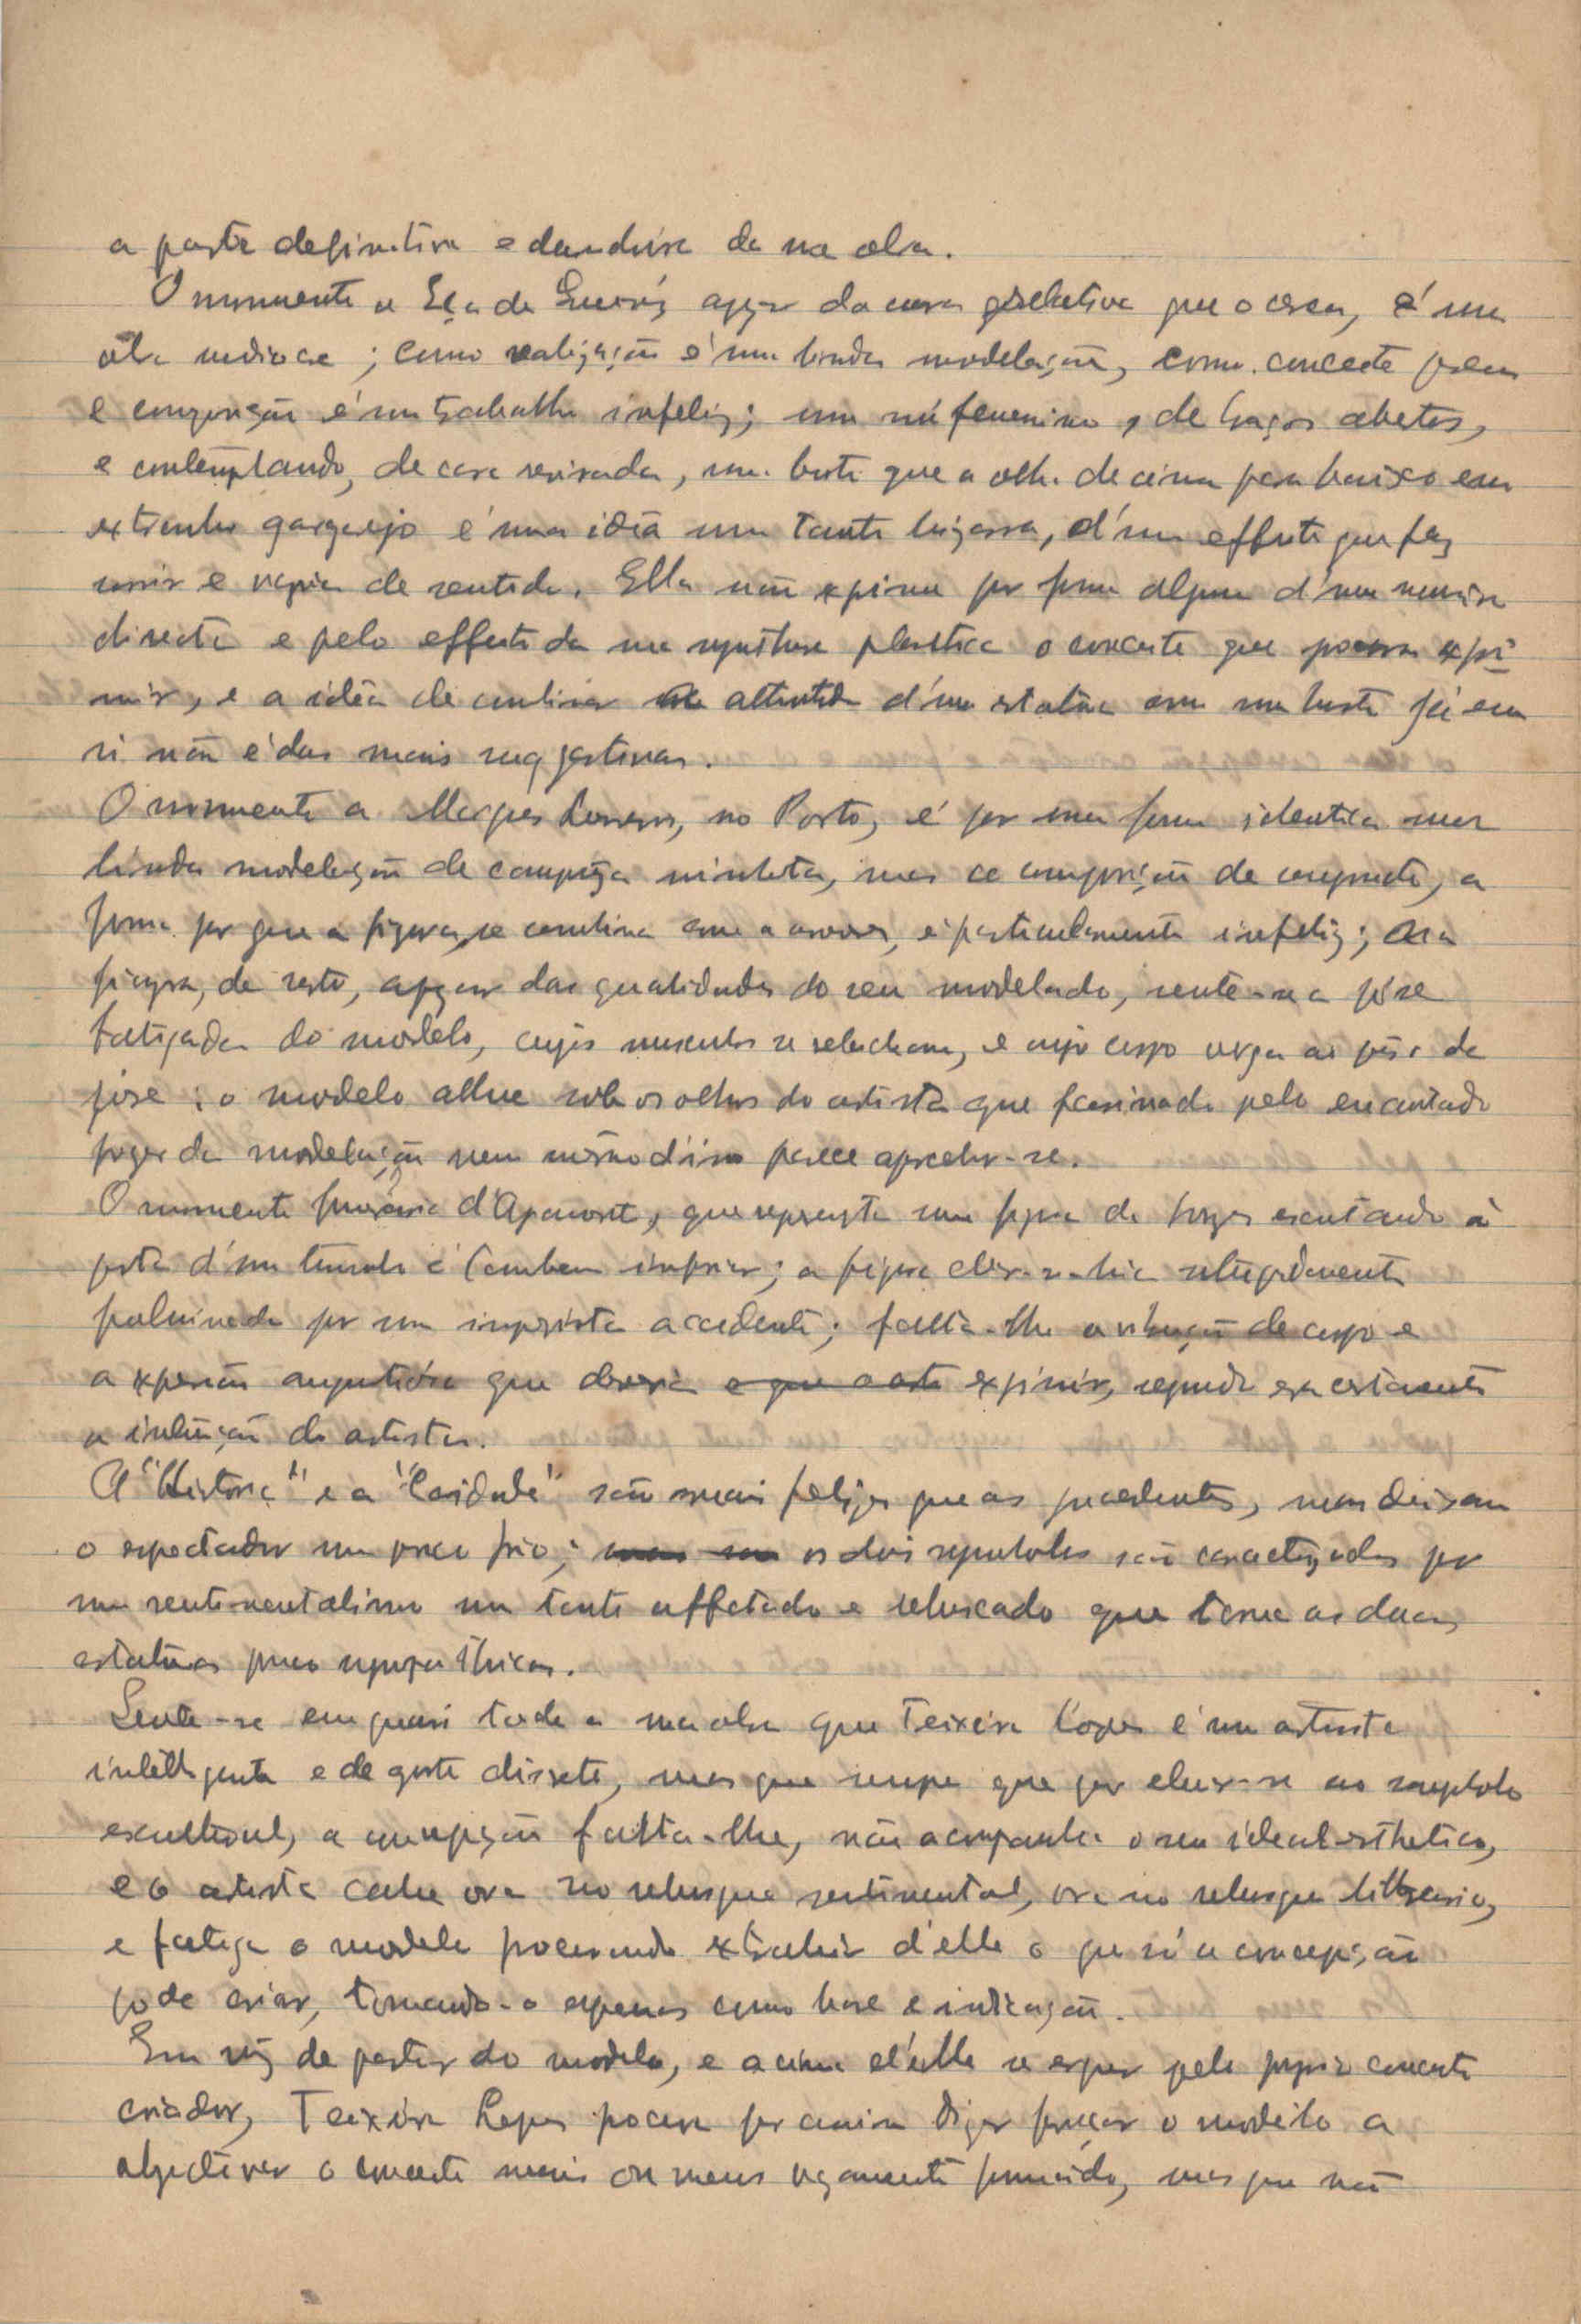 a parte definitiva e duradoira da sua obra.
O monumento a Eça de Queiróz apezar da aura que o cerca, é uma
obra mediocre; como realização é uma linda modelação, como conceito porem
e composição é um trabalho infeliz; um nú femenino, de braços abertos,
e contemplando, de cara revirada, um busto que a olha de cima para baixo em
extranho gargarejo é uma idéa um tanto bizarra, d'um effeito que faz
sorrir e vazia de sentido. Ella não exprime por forma alguma d'uma maneira
directa e pelo effeito da sua synthese plastica o conceito que procura expri
mir, e a idéa de combinar a attitude d'uma estatua com um busto já em
si não é das mais suggestivas.
O monumento a Marques Loureiro, no Porto, é por uma forma identica uma
linda modelação de camponeza minhota, mas a composição de conjuncto, a
forma por que a figura se combina com a arvore, é particularmente infeliz; na
figura, de resto, apezar das qualidades do seu modelado, sente-se a póse
fatigada do modelo, cujos musculos se relacham, e cujo corpo verga ao pêso da
póse: o modelo allue sob os olhos do artista que fascinado pelo encantado
prazer da modelação nem mesmo d'isso parece aperceber-se.
O monumento funerario d'Agramont, que representa uma figura de bronze escutando á
porta d'um tumulo é tambem inferior; a figura dir-se-hia estupidamente
fulminada por um imprevisto accidente; falta-lhe a vibração de corpo e
a expressão angustiosa que deveria e que a arte exprimir, segundo era certamente
a intenção do artista.
A "Historia" e a "Caridade" são mais felizes que as precedentes, mas deixam
o espectador um pouco frio; mas são os dois symbolos são caracterizados por
um sentimentalismo um tanto affectado e rebuscado que torna as duas
estatuas pouco sympathicas.
Sente-se em quasi toda a sua obra que Teixeira Lopes é um artista
intelligente e de gosto discreto, mas que sempre que quer elevar-se ao symbolo
esculptural, a concepção falta-lhe, não acompanha o seu ideal esthetico,
e o artista cahe ora no rebusque sentimental, ora no rebusque litterario,
e fatiga o modelo procurando extrahir d'elle o que só a concepção
póde criar, tomando-o apenas como base e indicação.
Em vêz de partir do modelo, e acima d'elle se erguer pelo proprio conceito
criador, Teixeira Lopes procura por assim dizer forçar o modelo a
objectivar o conceito mais ou menos vagamente formado, mas que não